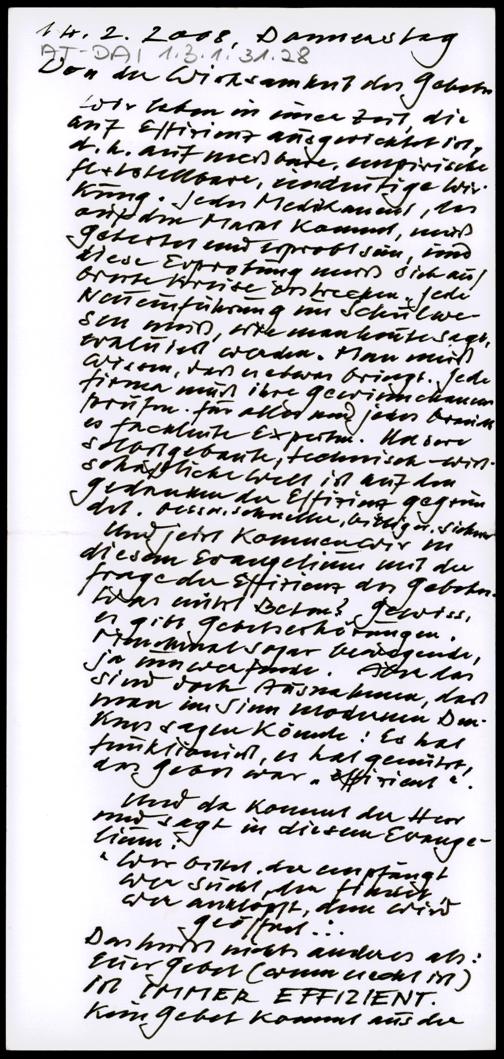 14. 2. 2008, Donnerstag
AT-DAI 1.3.1.31.28
Von der Wirksamkeit des Gebetes
Wir leben in einer Zeit, die
auf Effizienz ausgerichtet ist,
d. h. auf meßbare, empirische
feststellbare, eindeutige Wir-
kung. Jedes Medikament, das
auf den Markt kommt, muß
getestet und erprobt sein, und
diese Erprobung muß sich auf
breite Kreise erstrecken. Jede
Neueinführung im Schulwe-
sen muß, wie man heute sagt,
evaluiert werden. Man muß
wissen, daß es etwas bringt. Jede
Firma muß ihre Gewinnchancen
prüfen. Für alles und jedes braucht
es Fachleute Experten. Unsere
selbstgebaute, technisch-wirt-
schaftliche Welt ist auf den
Gedanken der Effizienz gegrün
det. besser, schneller, billiger, sicherer
Und jetzt kommen wir in
diesem Evangelium mit der
Frage der Effizienz des Gebetes.
Was nützt Beten? Gewiss,
es gibt Gebetserhörungen.
Manchmal sogar bewegende,
ja umwerfende. Aber das
sind doch Ausnahmen, daß
man im Sinn modernen Den-
kens sagen könnte: Es hat
funktioniert, es hat genützt,
das Gebet war „effizient“.
Und da kommt der Herr
und sagt in diesem Evange-
lium:
"Wer bittet, der empfängt
wer sucht, der findet
wer anklopft, dem wird
geöffnet...
Das heißt nichts anderes als:
Euer Gebet (wenn es echt ist)
ist IMMER EFFIZIENT.
Kein Gebet kommt aus der